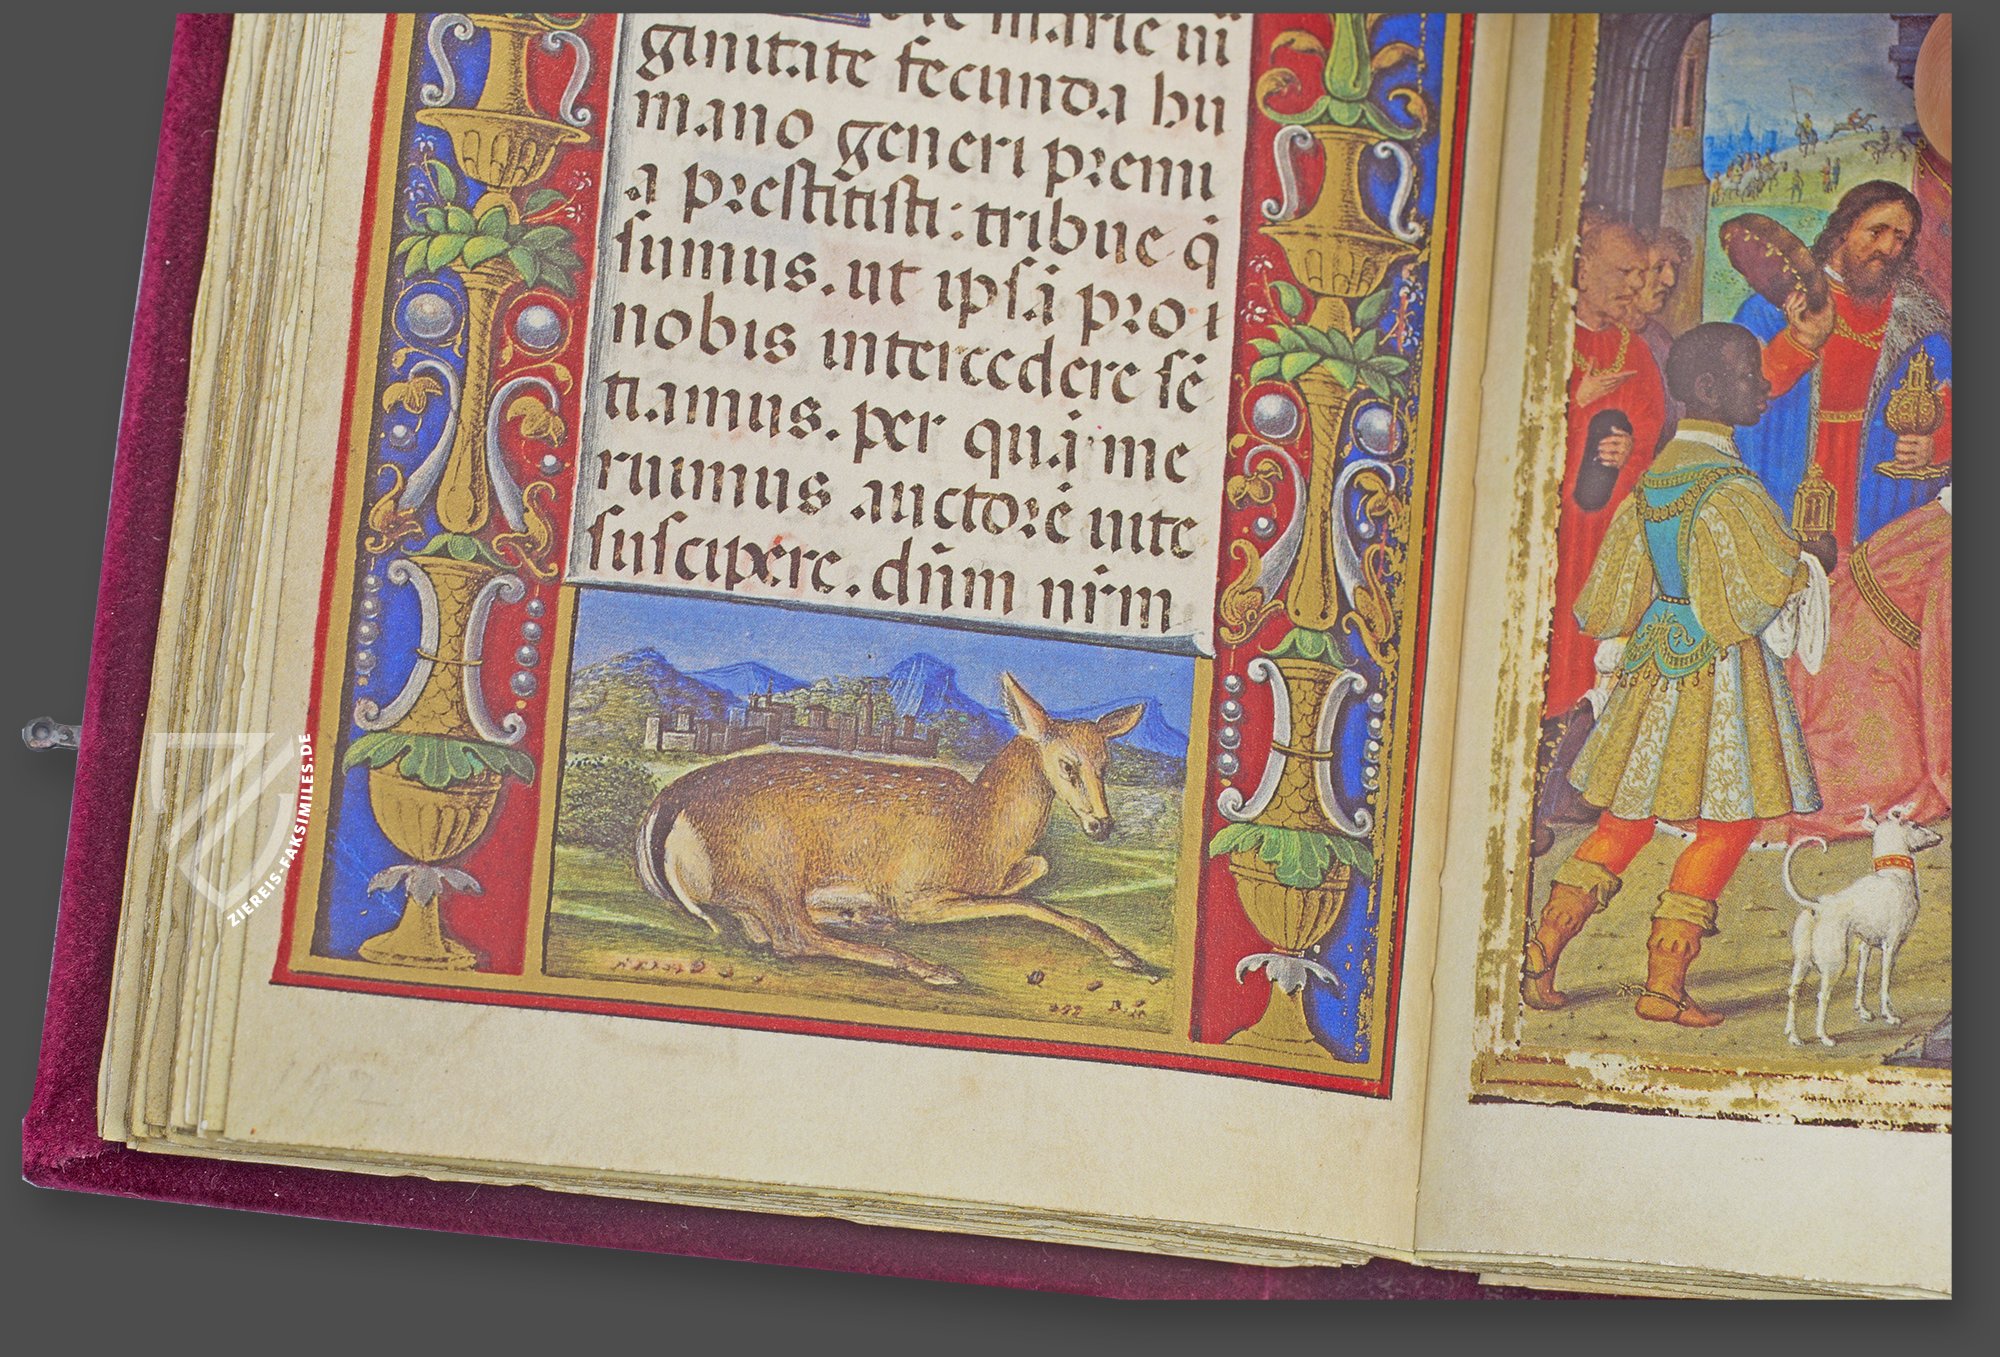 marie uir
ginitate fecunda hu
mano generi premi
a prestitisti: tribue q̇
sumus. ut ipsā pro
nobis intercedere sē
tiamus. per quā me
ruimus auctorē uite
suscipere. dñm nr̄m
ZIEREIS-FAKSIMILES.DE